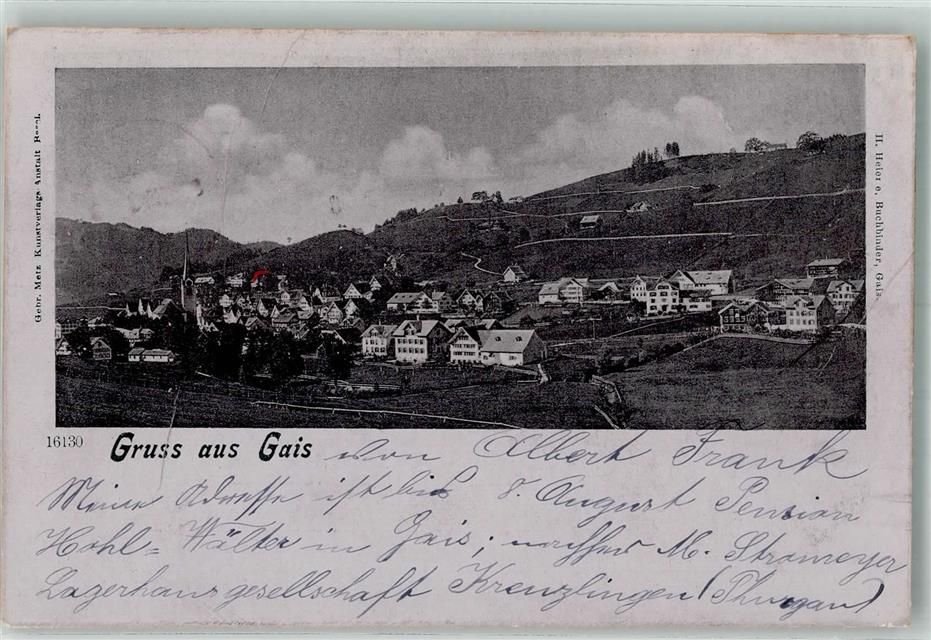 Gebr. Metz Kunstverlags-Anstalt Basel.
H. Heier e. Buchbinder, Gais.
16130
Gruss aus Gais von Albert Frank
Meine Adresse ist bis 8. August Pension
Hohl-Wälter in Gais; nachher M. Stromeyer
Lagerhausgesellschaft Kreuzlingen (Thurgau)